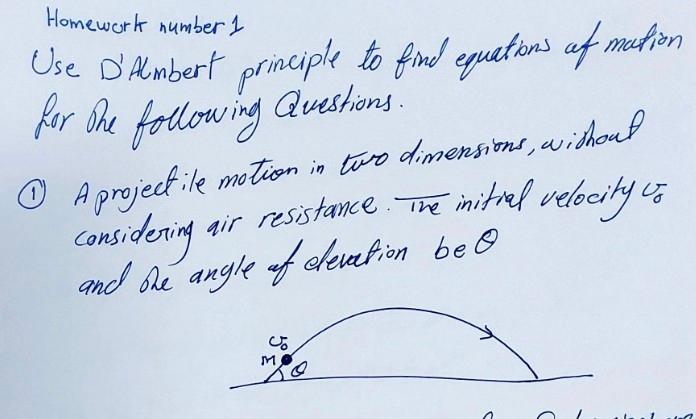 Homework number 1
Use D'Almbert principle to find equations of motion
for the following Questions.
① A projectile motion in two dimensions, without
considering air resistance. The initial velocity v₀
and the angle of elevation be θ
v₀
M θ